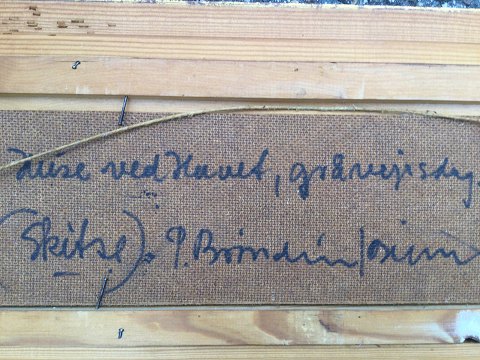 Huse ved Havet, gråvejrsdag.
(Skitse). P. Brøndum